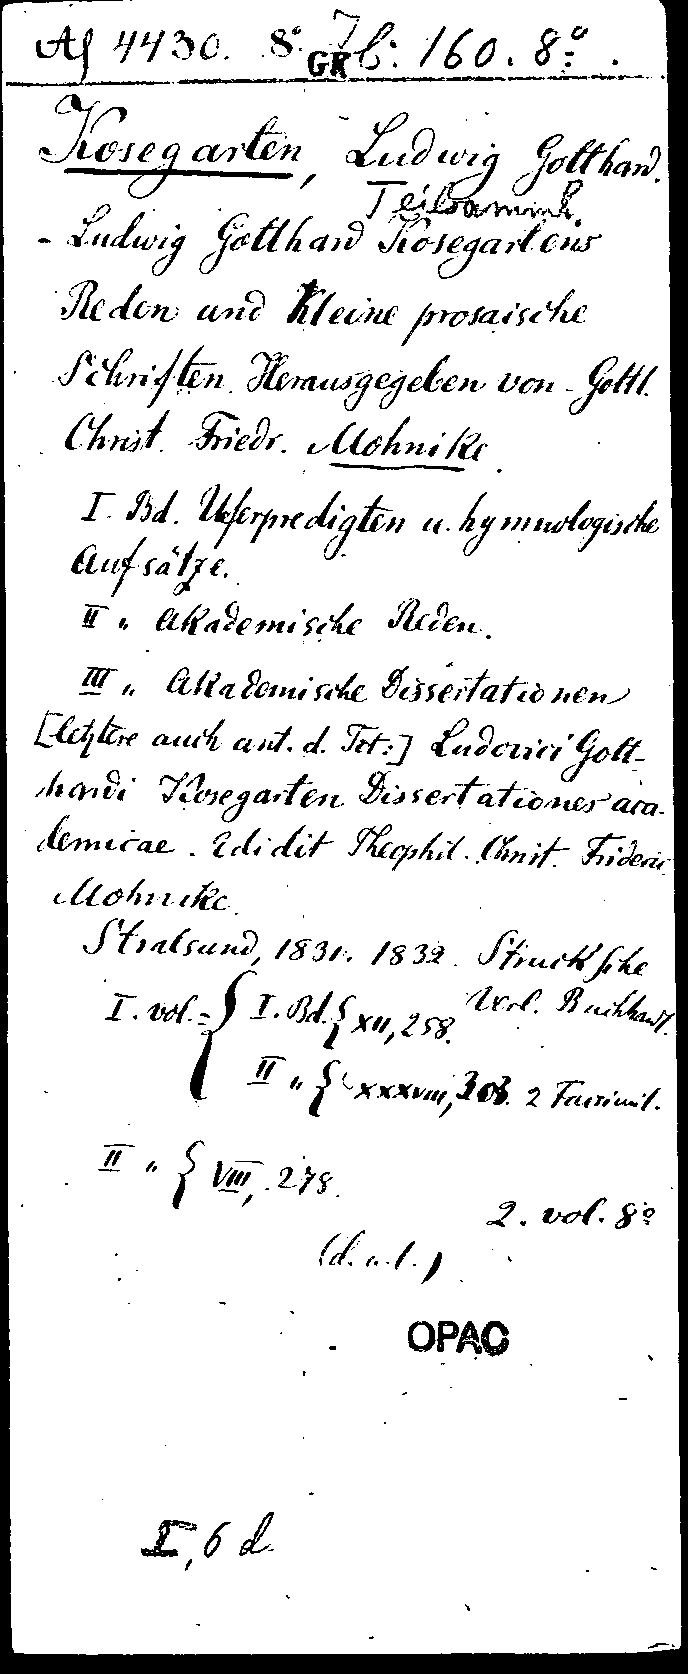 4430. 8º. 7
GK b: 160. 8º.
Kosegarten, Ludwig Gotthard.
Teilsamml.
- Ludwig Gotthard Kosegartens
Reden und Kleine prosaische
Schriften. Herausgegeben von Gottl.
Christ. Friedr. Mohnike.
I. Bd. Uferpredigten u. hymnologische
Aufsätze.
II " Akademische Reden.
III " Akademische Dissertationen
[letztere auch unt. d. Tit:] Ludovici Gott-
hardi Kosegarten Dissertationes aca-
demicae. Edidit Theophil. Christ. Frideric
Mohnike.
Stralsund, 1831. 1832. Struck'sche
Verl. Buchhandl.
I. vol. = { I. Bd. { XII, 258.
II " { XXXVIII, 2 Facsimil.
II " { VIII, 278.
2. vol. 8º
(d. u. l.)
OPAC
I, 6 d